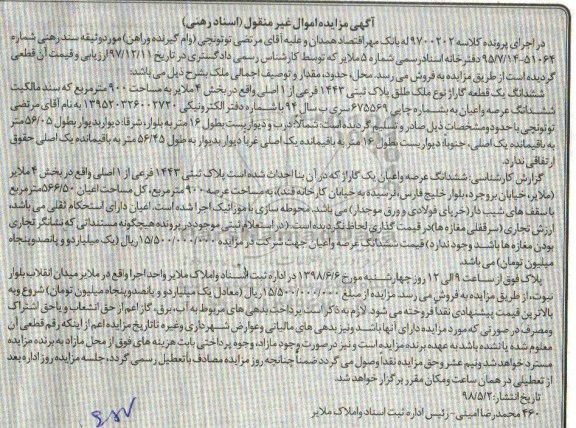 آگهی مزایده اموال غیر منقول (اسناد رهنی)
در اجرای پرونده کلاسه ۹۷۰۰۲۰۲ له بانک مهر اقتصاد همدان و علیه آقای مرتضی توتونچی (وام گیرنده و راهن) مورد وثیقه سند رهنی شماره
۹۵/۷/۱۴-۵۱۰۶۴ دفترخانه اسناد رسمی شماره ۵ ملایر که توسط کارشناس رسمی دادگستری در تاریخ ۹۷/۱۲/۱۱ ارزیابی و قیمت آن قطعی
گردیده است از طریق مزایده به فروش می رسد. محل، حدود، مقدار و توصیف اجمالی ملک بشرح ذیل می باشد:
ششدانگ یک قطعه گاراژ نوع ملک طلق پلاک ثبتی ۱۴۴۳ فرعی از ۱ اصلی واقع در بخش ۴ ملایر به مساحت ۹۰۰ مترمربع، که سند مالکیت
ششدانگ عرصه و اعیان به شماره چاپی ۶۷۵۵۶۹ سری ب سال ۹۴ با شماره دفتر الکترونیکی ۱۳۹۵۲۰۳۲۶۰۰۲۷۳۰ به نام آقای مرتضی
توتونچی با حدود و مشخصات ذیل صادر و تسلیم گردیده است: شمالا: درب و دیواریست بطول ۱۶ متر به بلوار، شرقا: دیوار بدیوار بطول ۵۶/۰۵ متر
به باقیمانده یک اصلی، جنوبا: دیواریست بطول ۱۶ متر به باقیمانده یک اصلی غربا دیوار بدیوار به طول ۵۶/۴۵ متر به باقیمانده یک اصلی حقوق
ارتفاقی ندارد.
گزارش کارشناسی: ششدانگ عرصه و اعیان یک گاراژ که در آن بنا احداث شده است پلاک ثبتی ۱۴۴۳ فرعی از ۱ اصلی واقع در بخش ۴ ملایر
(ملایر، خیابان بروجرد، بلوار خلیج فارس، نرسیده به خیابان کارخانه قند)، به مساحت عرصه ۹۰۰ مترمربع، کل مساحت اعیان ۵۶۶/۵۰ مترمربع
با سقف های شیب دار (خرپای فولادی و ورق موجدار) می باشد. محوطه سازی با موزائیک اجرا شده است. اعیان دارای استحکام ثقلی می باشد
ارزش تجاری (سرقفلی مغازه ها) در قیمت گذاری لحاظ نگردیده است. (در استعلام ثبتی موجود در پرونده هیچگونه مستنداتی که نشانگر تجاری
بودن مغازه ها باشد وجود ندارد) قیمت ششدانگ عرصه و اعیان جهت شرکت در مزایده ۱۵/۵۰۰/۰۰۰/۰۰۰ ریال (یک میلیارد و پانصد و پنجاه
میلیون تومان) می باشد.
پلاک فوق از ساعت ۹ الی ۱۲ روز چهارشنبه مورخ ۱۳۹۸/۶/۶ در اداره ثبت اسناد و املاک ملایر واحد اجرا واقع در ملایر میدان انقلاب بلوار
نبوت، از طریق مزایده به فروش می رسد. مزایده از مبلغ ۱۵/۵۰۰/۰۰۰/۰۰۰ ریال (معادل یک میلیارد و پانصد و پنجاه میلیون تومان) شروع و به
بالاترین قیمت پیشنهادی نقدا فروخته می شود. لازم به ذکر است پرداخت بدهی های مربوط به آب، برق، گاز اعم از حق انشعاب و یا حق اشتراک
و مصرف در صورتی که مورد مزایده دارای آنها باشد و نیز بدهی های مالیاتی و عوارض شهرداری و غیره تا تاریخ مزایده اعم از اینکه رقم قطعی آن
معلوم شده یا نشده باشد به عهده برنده مزایده است و نیز در صورت وجود مازاد، وجوه پرداختی بابت هزینه های فوق از محل مازاد به برنده مزایده
مسترد خواهد شد و نیم عشر و حق مزایده نقدا وصول می گردد ضمناً چنانچه روز مزایده مصادف با تعطیل رسمی گردد، جلسه مزایده روز اداره بعد
از تعطیلی در همان ساعت و مکان مقرر برگزار خواهد شد.
تاریخ انتشار: ۹۸/۵/۲
۴۶۰ محمدرضا امینی- رئیس اداره ثبت اسناد و املاک ملایر